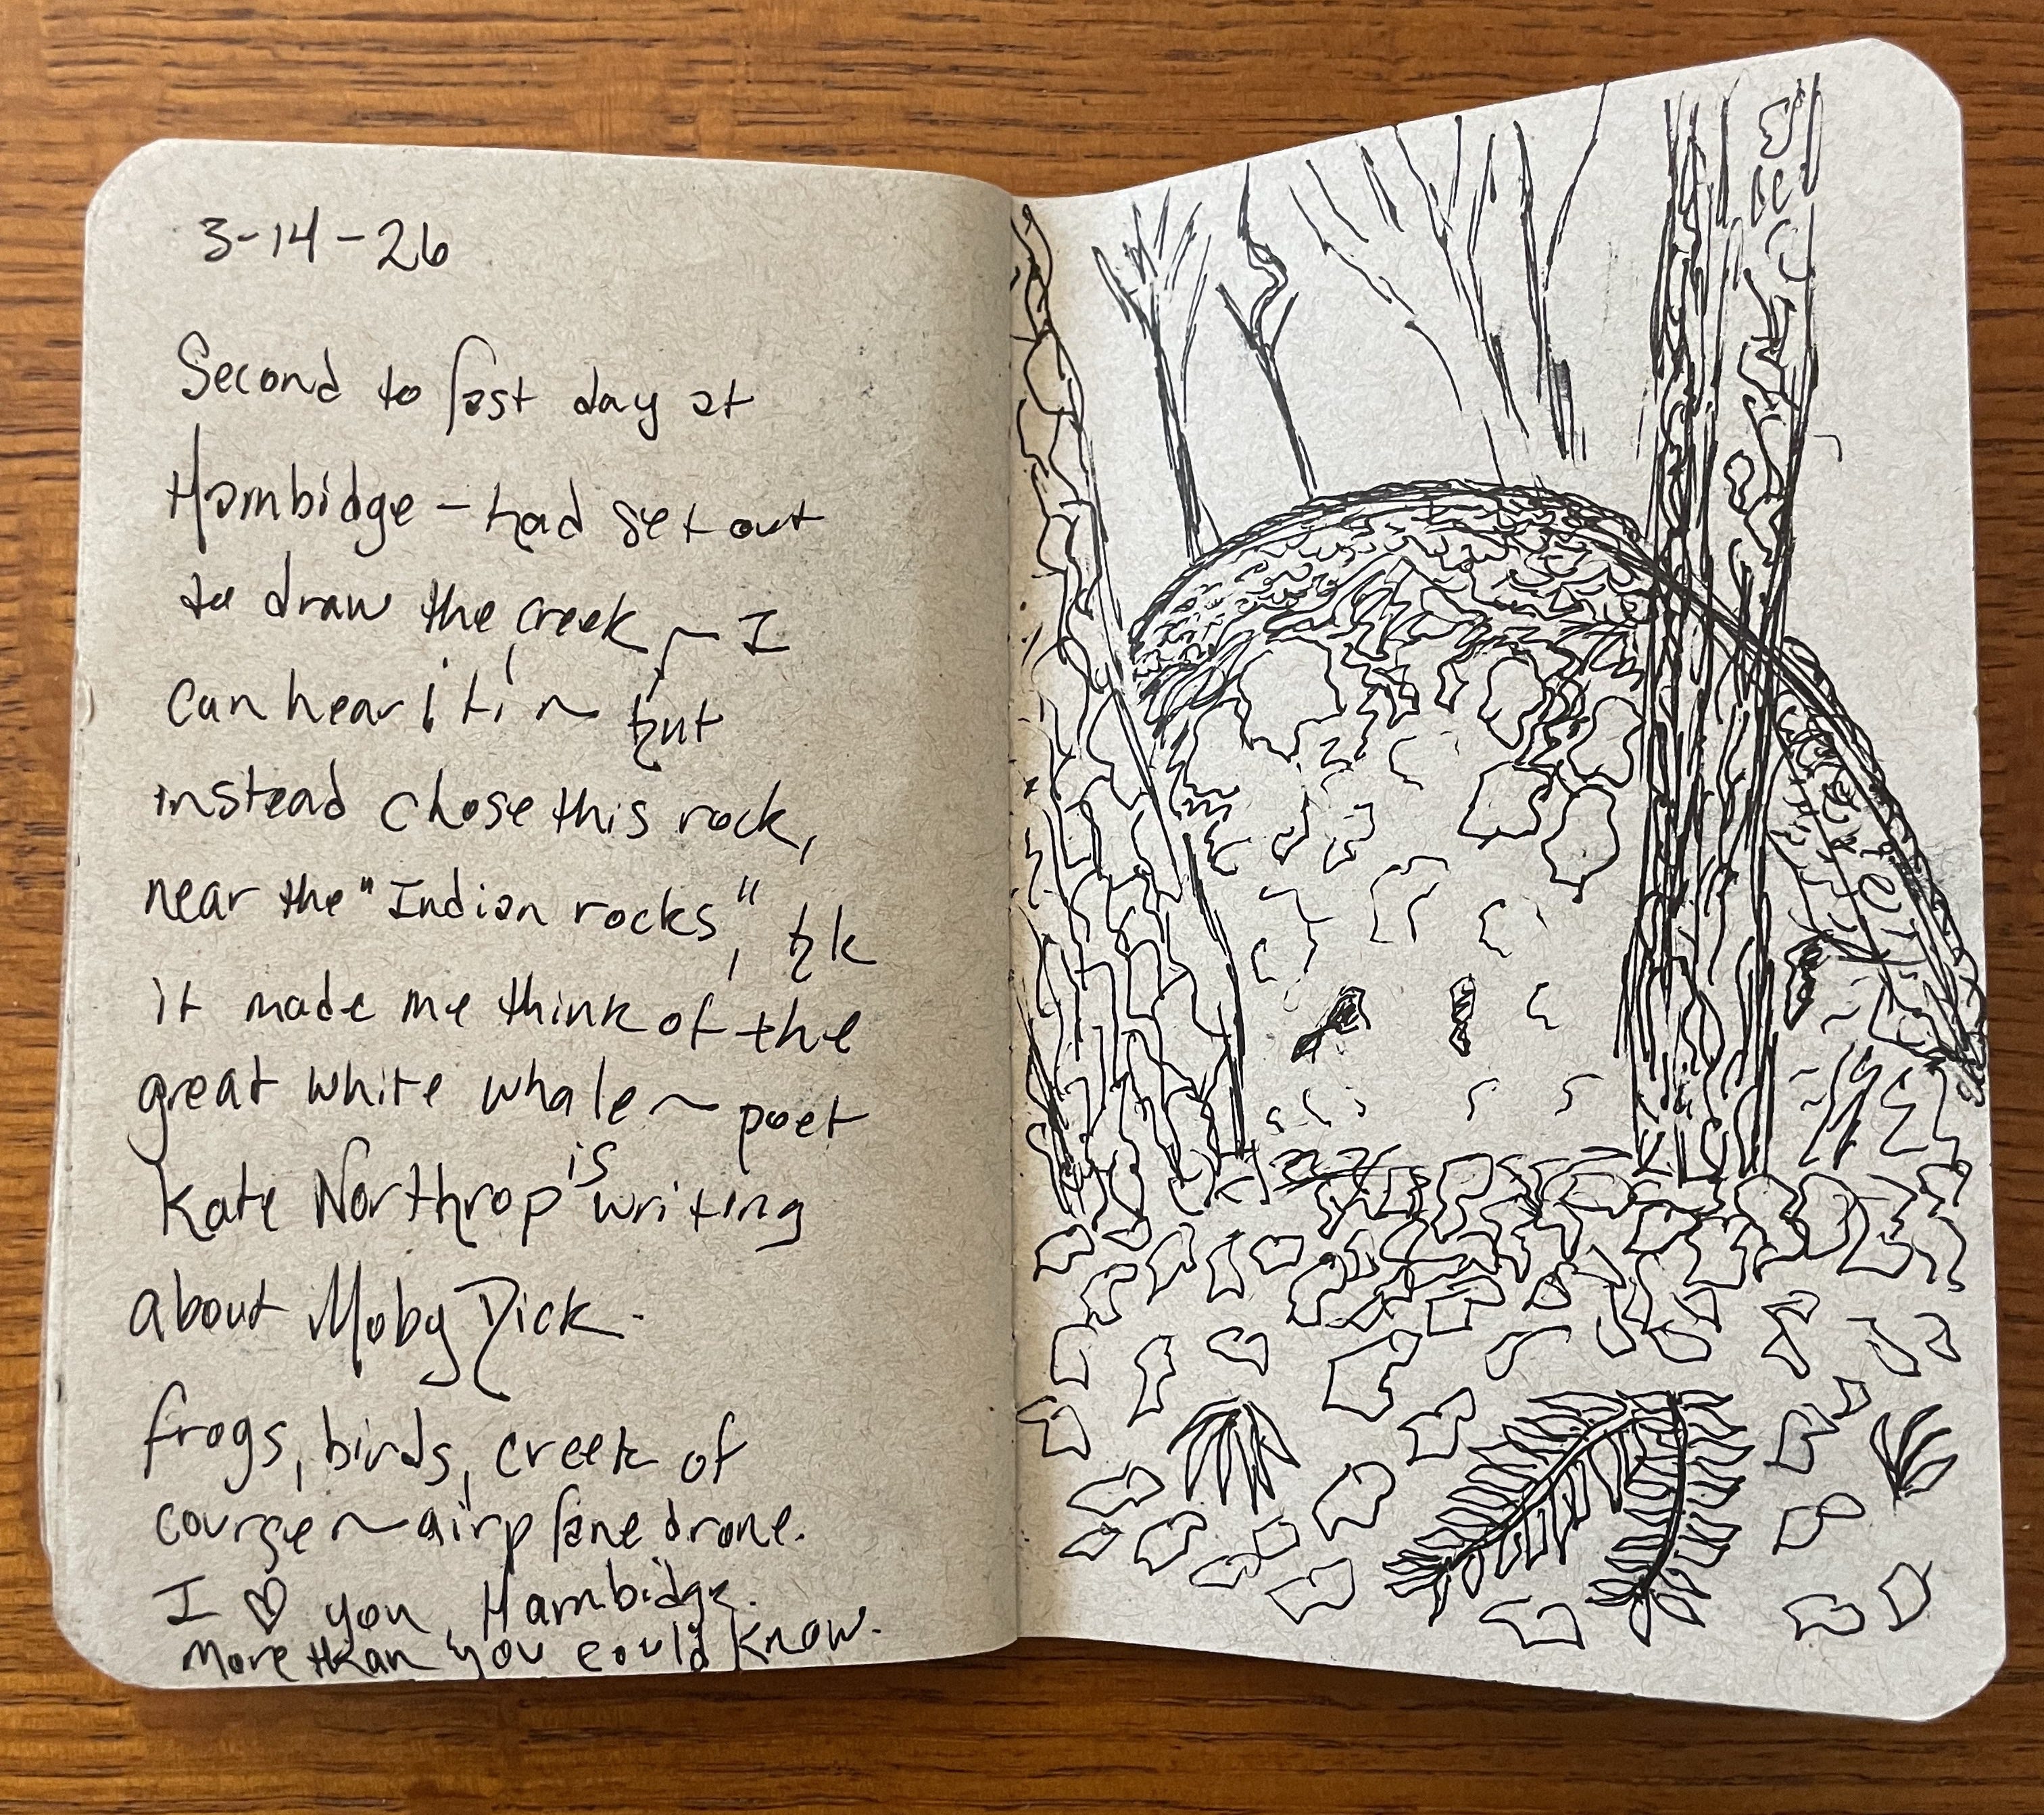 3-14-26
Second to last day at
Hambidge - had set out
to draw the creek ~ I
can hear it! ~ but
instead chose this rock,
near the "Indian rocks," bk
it made me think of the
great white whale ~ poet
Kate Northrop is writing
about Moby Dick.
frogs, birds, creek of
course ~ airplane drone.
I ♡ you Hambidge.
More than you could know.